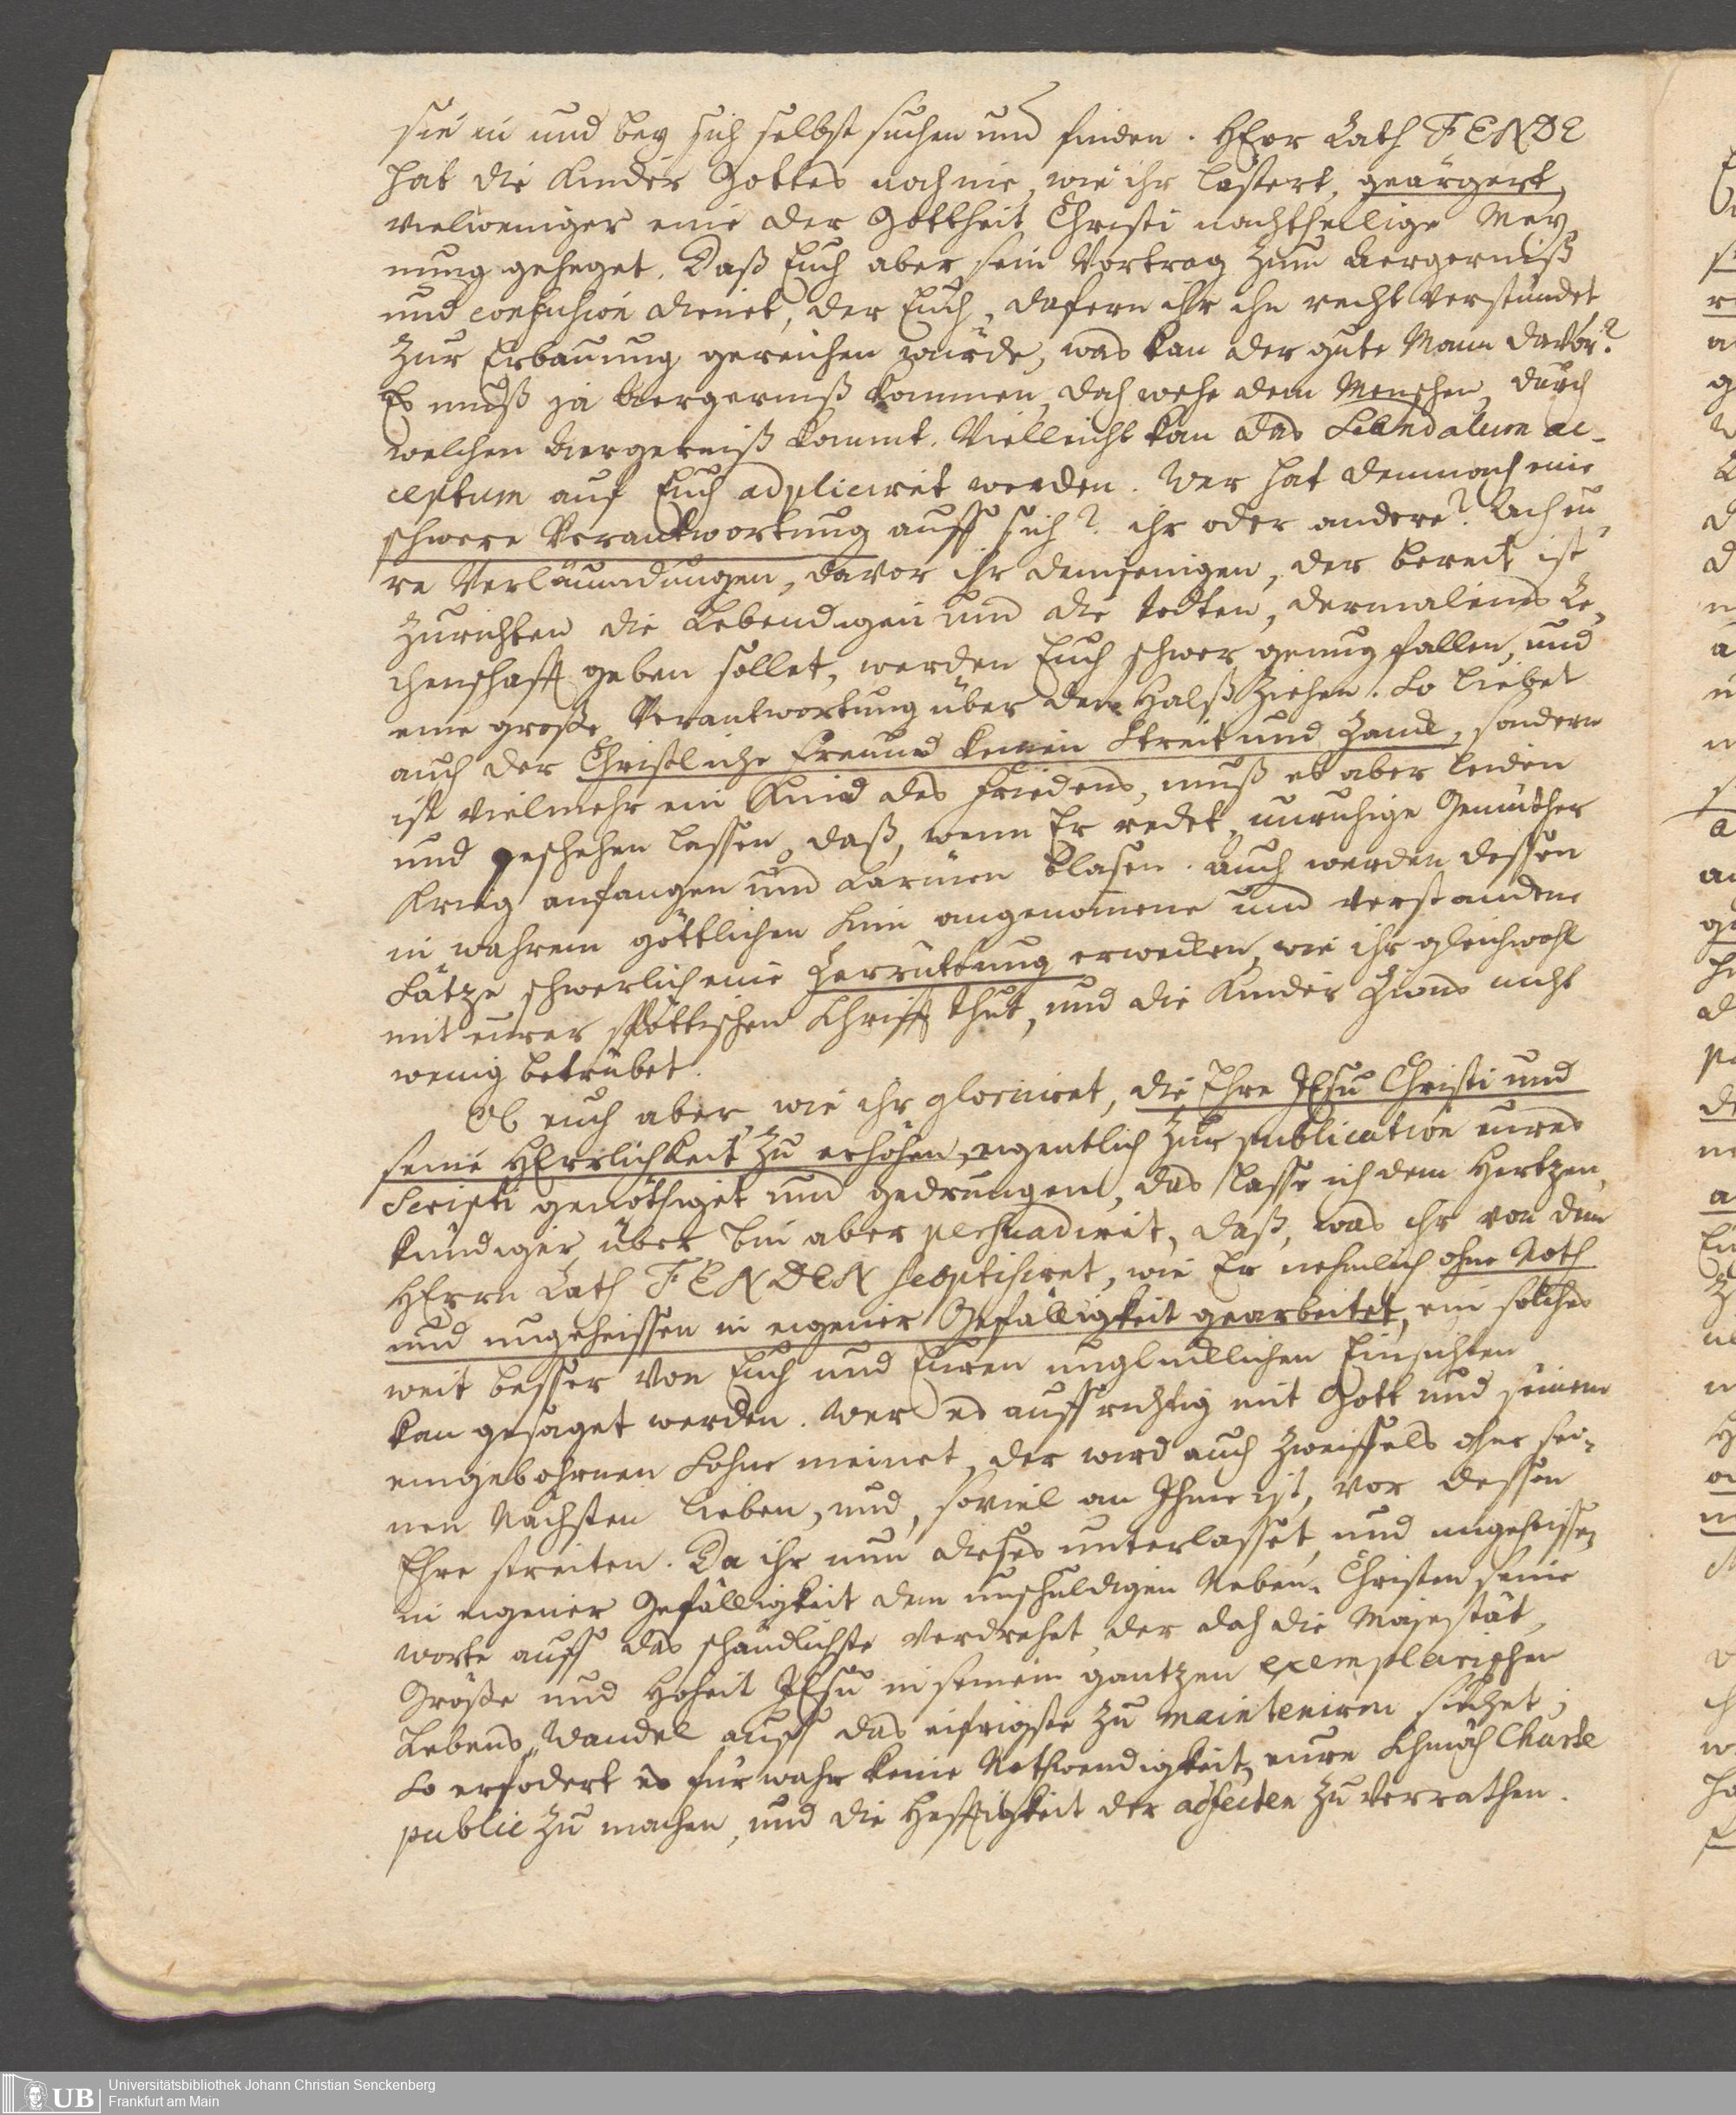 sie in und bey sich selbst suchen und finden. HErr Rath FENDE
hat die Kinder Gottes noch nie, wie ihr lästert, geärgert,
vielweniger eine der Gottheit Christi nachtheilige Mey-
nung geheget. Daß Euch aber sein Vortrag zum Aergerniß
und confusion dienet, der Euch, dafern ihr ihn recht verstündet
zur Erbauung gereichen würde, was kan der gute Mann davor?
Es muß ja Aergerniß kommen, doch wehe dem Menschen, durch
welchen Aergerniß kommt. Vielleicht kan das Scandalum ac-
ceptum auf Euch adpliciret werden. Wer hat demnach eine
schwere Verantwortung auff sich? ihr oder andere? Ach eu-
re Verläumdungen, davor ihr demjenigen, der bereit ist
zurichten die Lebendigen und die todten, dermaleins Re-
chenschafft geben sollet, werden Euch schwer genug fallen, und
eine große Verantwortung über den Halß ziehen. So liebet
auch der Christliche Freund keinen Streit und Zanck, sondern
ist vielmehr ein Kind des Friedens, muß es aber leiden
und geschehen lassen, daß, wenn Er redet, unruhige Gemüther
Krieg anfangen und Lärmen blasen. Auch werden dessen
in wahrem göttlichen Sinn angenomene und verstandene
Sätze schwerlich eine Zerrüttung erwecken, wie ihr gleichwohl
mit eurer spöttischen Schrifft thut, und die Kinder Zions nicht
wenig betrübet.
Ob euch aber, wie ihr gloriiret, die Ehre JEsu Christi und
seine HErrlichkeit zu erhöhen, eigentlich zur publication eures
Scripti genöthiget und gedrungen, das lasse ich dem Hertzen-
kündiger über bin aber persuadiret, daß, was ihr von dem
HErrn Rath FENDEN scoptisiret, wie Er nehmlich ohne Noth
und ungeheissen in eigener Gefälligkeit gearbeitet, ein solches
weit besser von Euch und Euren unglücklichen Einsichten
kan gesaget werden. Wer es auffrichtig mit Gott und seinem
eingebohrnen Sohne meinet, der wird auch zweiffels ohne sei-
nen Nächsten lieben, und, soviel an Ihme ist, vor dessen
Ehre streiten. Da ihr nun dieses unterlasset, und ungeheissen
in eigener Gefälligkeit dem unschuldigen Neben-Christen seine
worte auff das schändlichste verdrehet, der doch die Majestät,
Größe und Hoheit JEsu in seinem gantzen exemplarischen
Lebens-Wandel auff das eifrigste zu mainteniren suchet;
So erfodert es fürwahr keine Nothwendigkeit, eure Schmäh Charte
public zu machen, und die Hefftigkeit der affecten zu verrathen.
UB Universitätsbibliothek Johann Christian Senckenberg
Frankfurt am Main